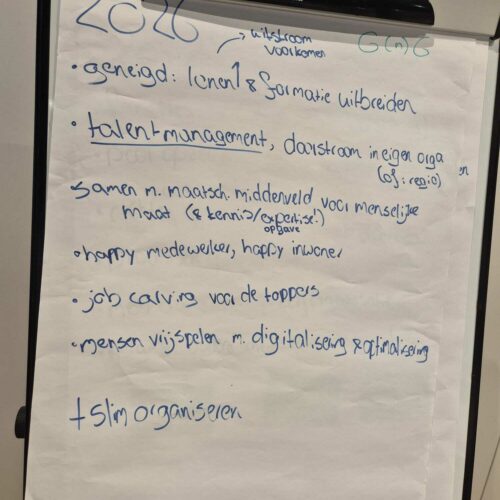 2026
uitstroom
voorkomen
G(n)G
• geneigd: lonen↑ & formatie uitbreiden
• talentmanagement, doorstroom in eigen orga
(of: regio)
en
samen m. maatsch. middenveld voor menselijke
maat (& kennis/expertise!)
opgave
• happy medewerker, happy inwoner
• job carving voor de toppers
• mensen vrijspelen m. digitalisering & optimalisering
+ Slim organiseren